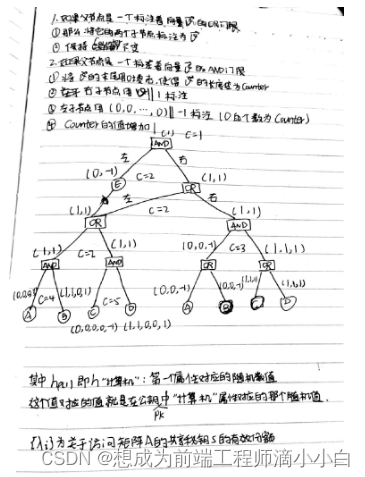 1. 如果父节点是一个标注着向量 v 的OR门限
① 那么 将它的两个子节点标注为 v
② 保持 不变
2. 如果父节点是一个标签着向量 v 的AND门限
① 将 v 的末尾用0填充, 使得 v 的长度为counter
② 右子节点 || 1 标注
③ 左子节点 (0,0,…,0) || -1 标注 (0的个数为counter)
④ counter的值增加1
(1) C=1
AND
左 右
(0,-1) C=2 (1,1)
E OR
(1,1) 左 C=2 右 (1,1)
OR AND
(1,1) C=2 (1,1) (0,0,-1) C=3 (1,1,1)
AND AND OR OR
C=4 (1,1,0,1) C=5 (0,0,-1) (0,0,-1) (1,1,1) (1,1,1)
A B C D A B C D
(0,0,0,0,-1) (1,1,0,0,1)
其中 即h "计算机": 第一个属性对应的随机数值
这个值对应的值就是在公钥中"计算机"属性对应的那个随机值.
PK
{λi}为关于访问矩阵A的共享秘钥s的有效份额
CSDN @想成为前端工程师滴小小白